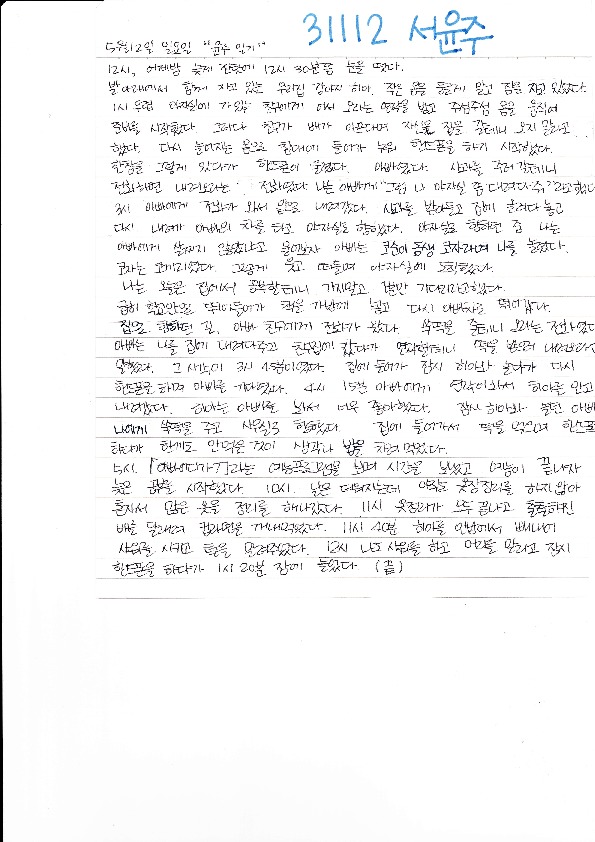 31112 서윤주
5월 12일 일요일 "윤주 일기"
12시, 어제밤 늦게 잔탓에 12시 30분쯤 눈을 떴다.
발 아래에서 함께 자고 있는 우리집 강아지 히아. 작은 몸을 동그랗게 말고 잠을 자고 있었다.
1시 무렵 야자실에 가 있는 친구에게 어서 오라는 연락을 받고 주섬주섬 몸을 움직여
준비를 시작했다. 그러다 친구가 배가 아프다며 자신도 집을 갈테니 오지 말라고
했다. 다시 늘어지는 몸으로 침대에 들어가 누워 핸드폰을 하기 시작했다.
한참을 그렇게 있다가 핸드폰이 울렸다. 아빠였다. 사과를 주러 갈테니
전화하면 내려오라는 전화였다 나는 아빠에게 "그럼 나 야자실 좀 데려다 주"라고 했다
3시 아빠에게 전화가 와서 밑으로 내려갔다. 사과를 받아들고 집에 올려다 놓고
다시 내려가 아빠의 차를 타고 야자실로 향했다. 야자실로 향하던 중 나는
아빠에게 살찌지 않았냐고 물어보자 아빠는 코순이 동생 코자라며 나를 놀렸다.
코자는 코끼리였다. 그렇게 웃고 떠들며 야자실에 도착했다.
나는 오늘은 집에서 공부할테니 가지말고 잠깐 기다리라고 했다.
급히 학교안으로 뛰어들어가 책을 가방에 넣고 다시 아빠차로 뛰어갔다.
집으로 향하던 길, 아빠 친구에게 전화가 왔다. 쑥떡을 줄테니 오라는 전화였다
아빠는 나를 집에 내려다주고 친구집에 갔다가 연락할테니 떡을 받으러 내려오라고
말했다. 그 시각이 3시 45분이었다. 집에 들어가 잠시 히아와 놀다가 다시
핸드폰을 하며 아빠를 기다렸다. 4시 15분 아빠에게 연락이 와서 히아를 안고
내려갔다. 히아는 아빠를 봐서 너무 좋아했다. 잠시 히아와 놀던 아빠
나에게 쑥떡을 주고 사무실로 향했다. 집에 들어가서 떡을 먹으며 핸드폰
하다가 한끼도 안먹은 것이 생각나 밥을 차려 먹었다.
5시. 「아빠어디가」라는 예능프로그램을 보며 시간을 보냈고 예능이 끝나자
늦은 공부를 시작했다. 10시. 날은 더워지는데 여름 옷장정리를 하지 않아
혼자서 많은 옷을 정리를 해나갔다. 11시 옷정리가 모두 끝나고 출출해진
배를 달래려 컵라면을 꺼내먹었다. 11시 40분 히아를 안방에서 빼내어
샤워를 시키고 털을 말려주었다. 12시 나도 샤워를 하고 머리를 말리고 잠시
핸드폰을 하다가 1시 20분 잠에 들었다 (끝)